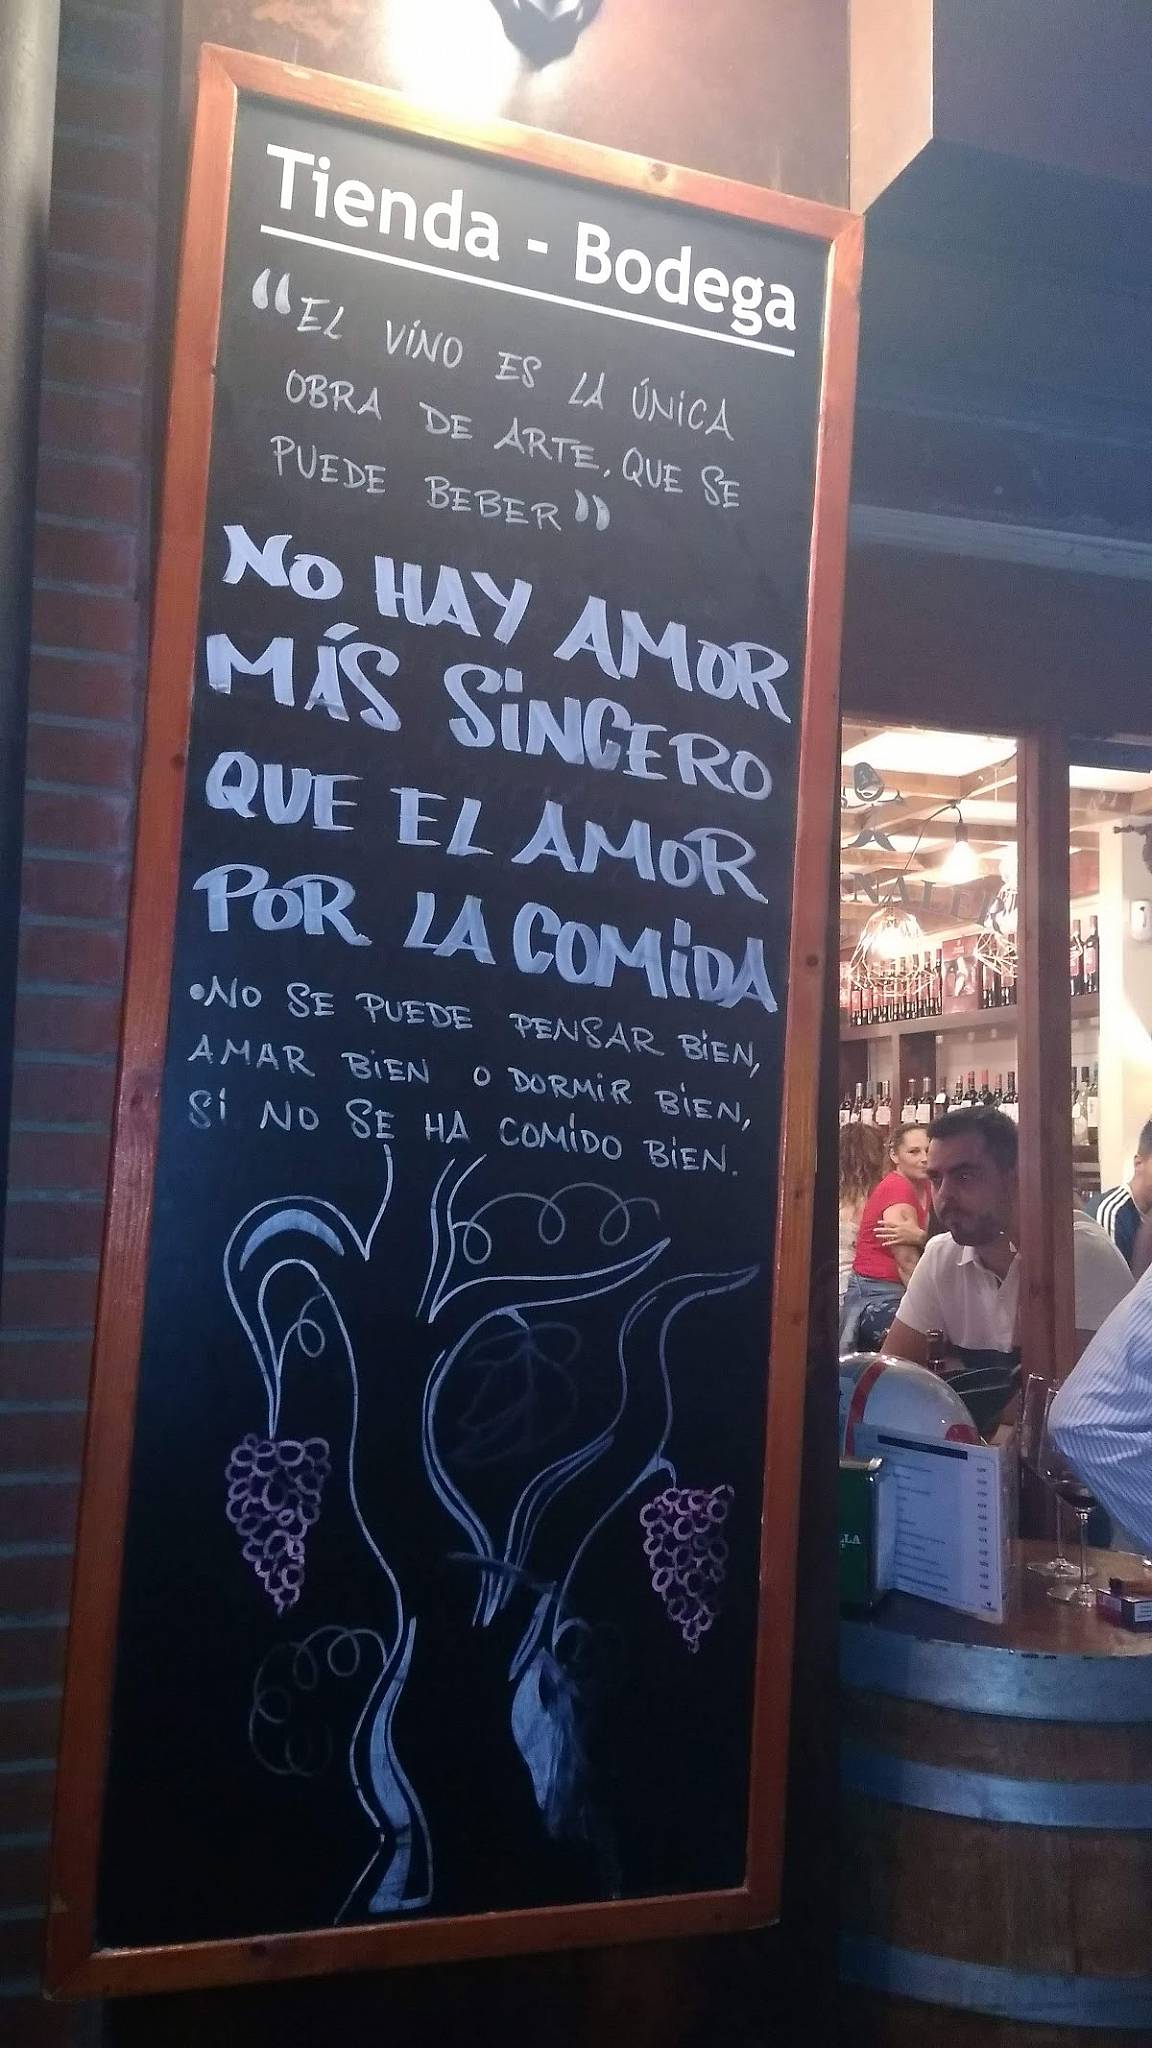 Tienda - Bodega
“EL VINO ES LA ÚNICA
OBRA DE ARTE, QUE SE
PUEDE BEBER”
NO HAY AMOR
MÁS SINCERO
QUE EL AMOR
POR LA COMIDA
•NO SE PUEDE PENSAR BIEN,
AMAR BIEN O DORMIR BIEN,
SI NO SE HA COMIDO BIEN.